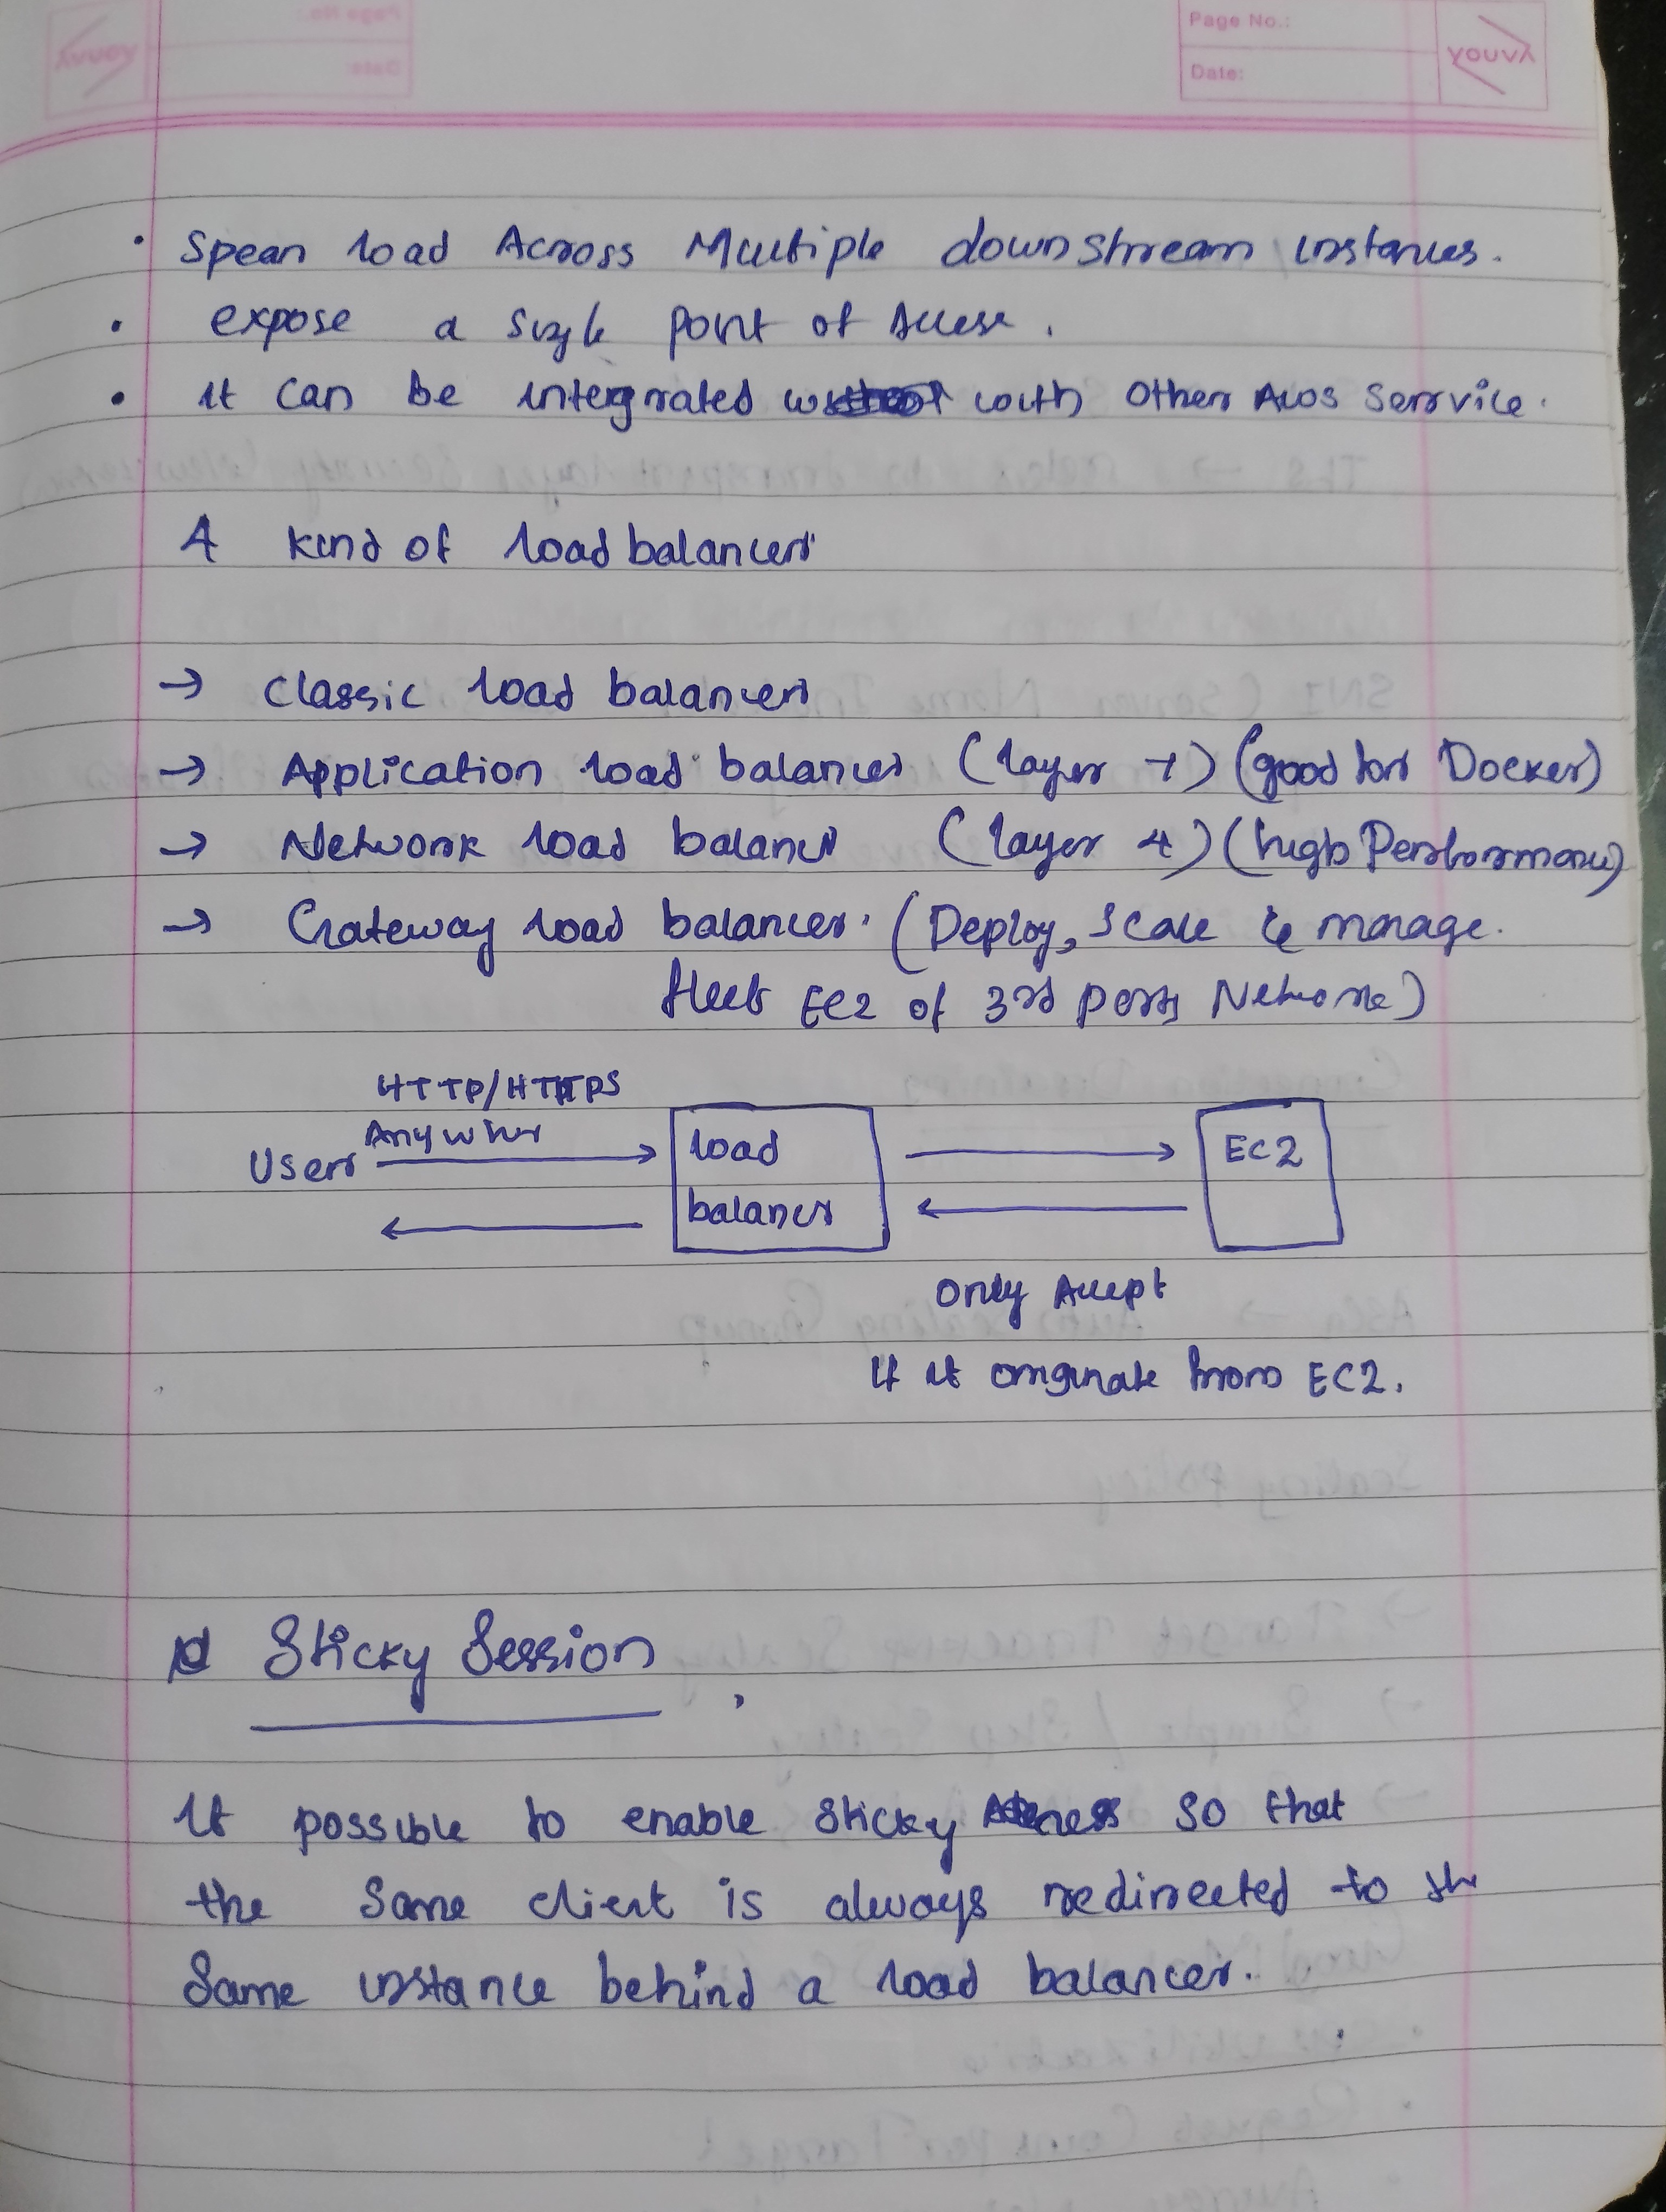 Page No.:
Date:
YOUVA
• Spean load Across Multiple downstream instances.
• expose a single point of Access.
• it can be integrated with other AWS Service.
4 kind of load balancer
→ Classic load balancer
→ Application load balancer (layer 7) (good for Docker)
→ Network load balancer (layer 4) (high Performance)
→ Gateway load balancer. (Deploy, Scale & manage.
fleet EC2 of 3rd party Network)
HTTP/HTTPS
Anywhere
User
load
balancer
EC2
Only Accept
if it originate from EC2.
Sticky Session
It possible to enable Sticky ness so that
the same client is always redirected to the
Same instance behind a load balancer.